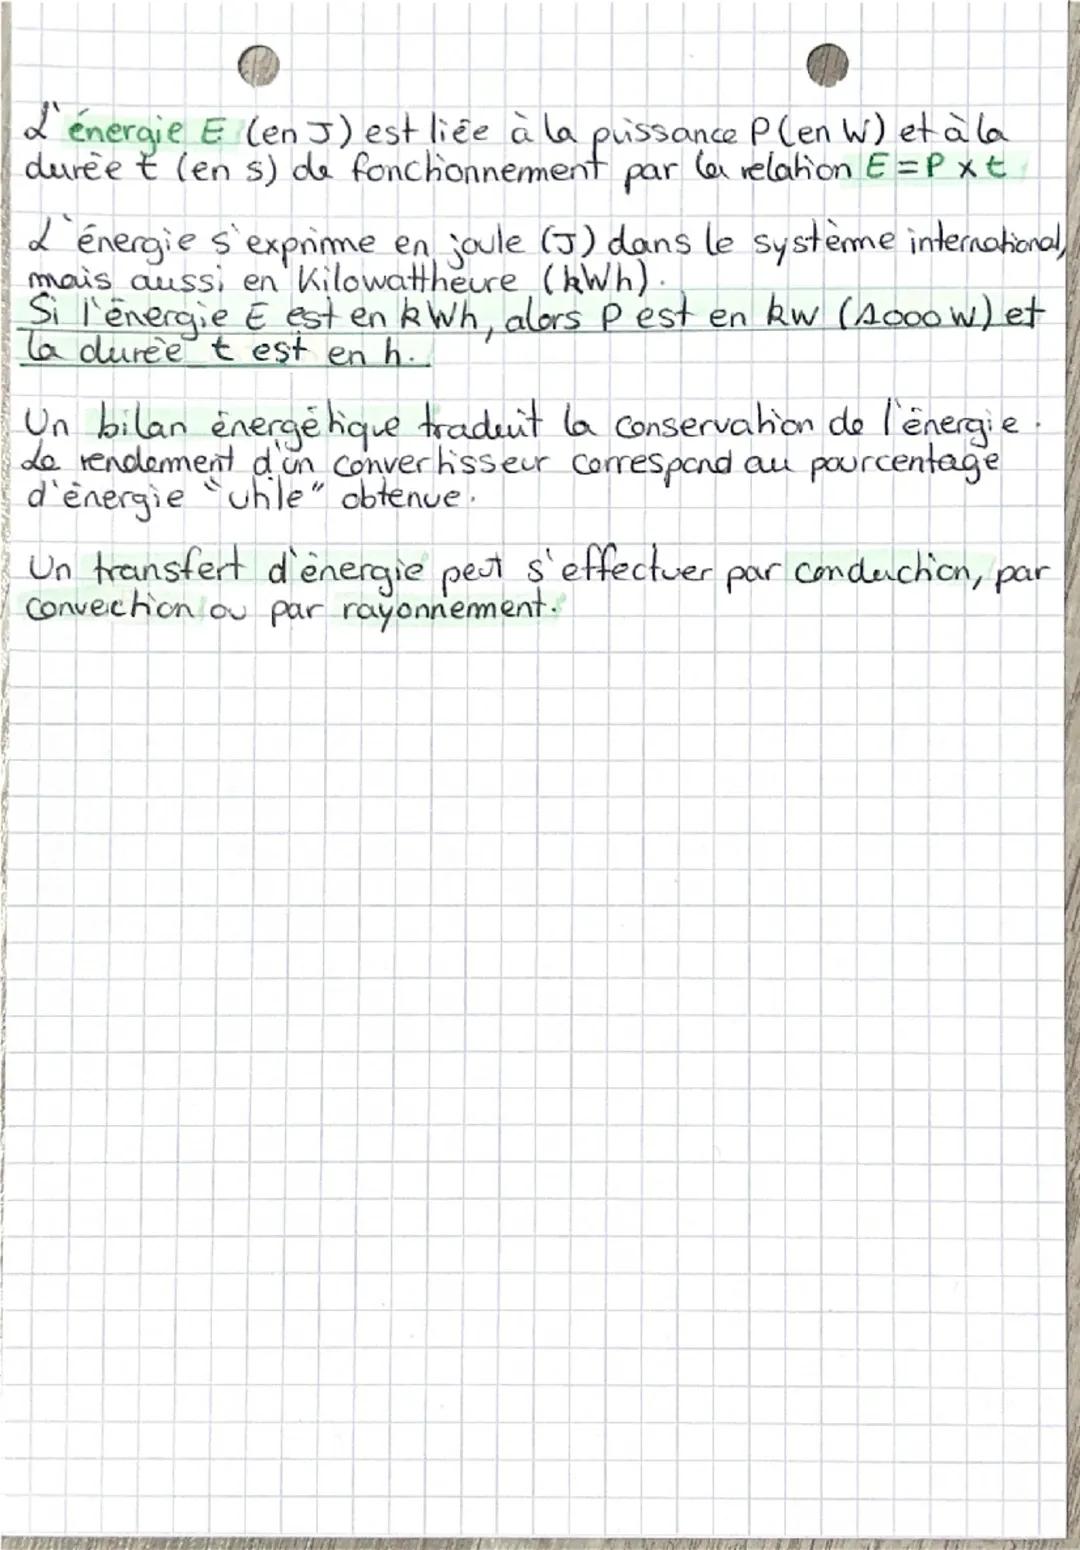 L'énergie E (en J) est liée à la puissance P (en W) et à la
durée t (en s) de fonctionnement par la relation E = P x t
L'énergie s'exprime en joule (J) dans le système international,
mais aussi en Kilowattheure (kWh).
Si l'énergie E est en kWh, alors P est en kw (1000 W) et
la durée t est en h.
Un bilan énergétique traduit la conservation de l'énergie.
Le rendement d'un convertisseur correspond au pourcentage
d'énergie "utile" obtenue.
Un transfert d'énergie peut s'effectuer par conduction, par
convection ou par rayonnement.